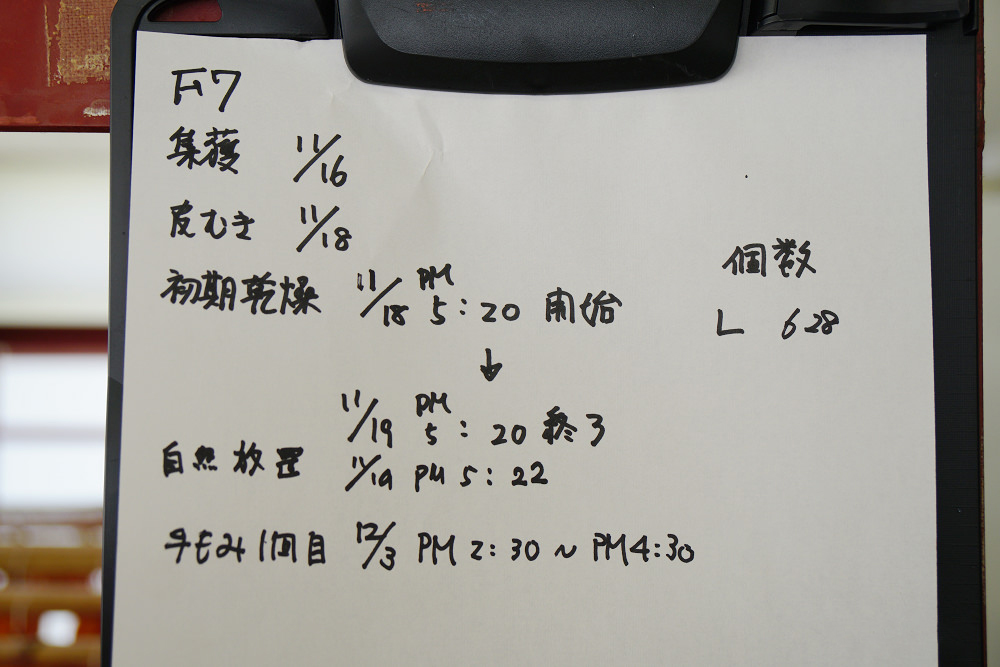 F7
集穫 11/16
皮むき 11/18
個数
初期乾燥 11/18 PM 5:20 開始
L 628
↓
11/19 PM 5:20 終了
自然放置 11/19 PM 5:22
手もみ1回目 12/3 PM 2:30~PM4:30